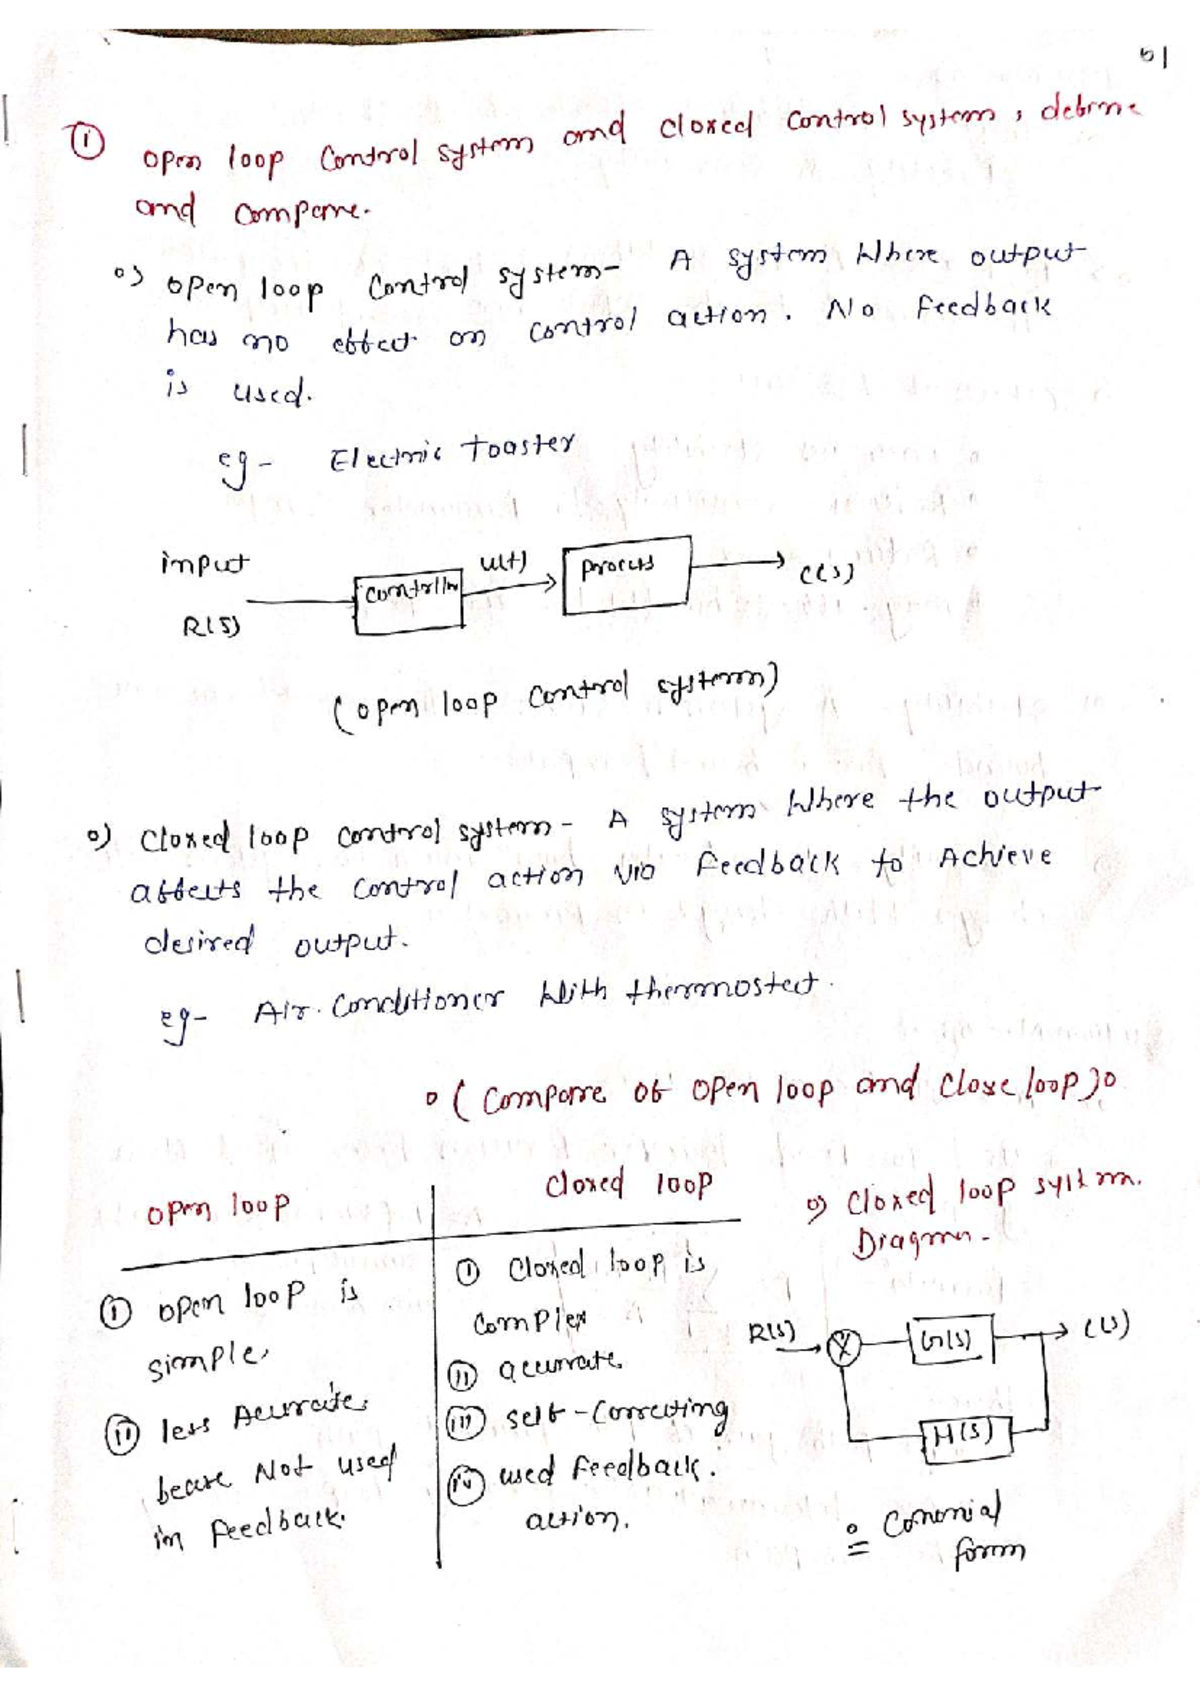 51
① open loop control system and closed control system, define
and compare.
o) open loop control system - A system where output
has no effect on control action. No feedback
is used.
eg - Electric toaster
input
R(S)
controller
u(t)
process
C(s)
(open loop control system)
o) Closed loop control system - A system where the output
affects the control action via feedback to Achieve
desired output.
eg - Air. Conditioner with thermostect.
o (Compare of open loop and close loop) o
open loop
closed loop
① open loop is
simple.
② less Accurate,
Not used
in feedback.
① Closed loop is
complex
② accurate
③ self-correcting
④ used feedback.
action.
o) Closed loop system.
Diagram -
R(s)
X
G(s)
C(s)
H(S)
Cononial
form